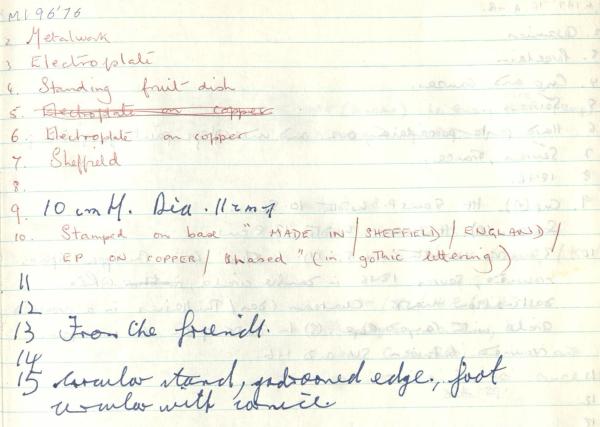 M196'76
2 Metalwork
3 Electroplate
4. Standing fruit dish
5. Electroplate on copper
6. Electroplate on copper
7. Sheffield
8.
9. 10 cm H. Dia. 11
10. Stamped on base "MADE IN / SHEFFIELD / ENGLAND /
EP ON COPPER / " (in gothic lettering)
11
12
13 From the friends.
14
15 circular stand, gadrooned edge, foot
circular with